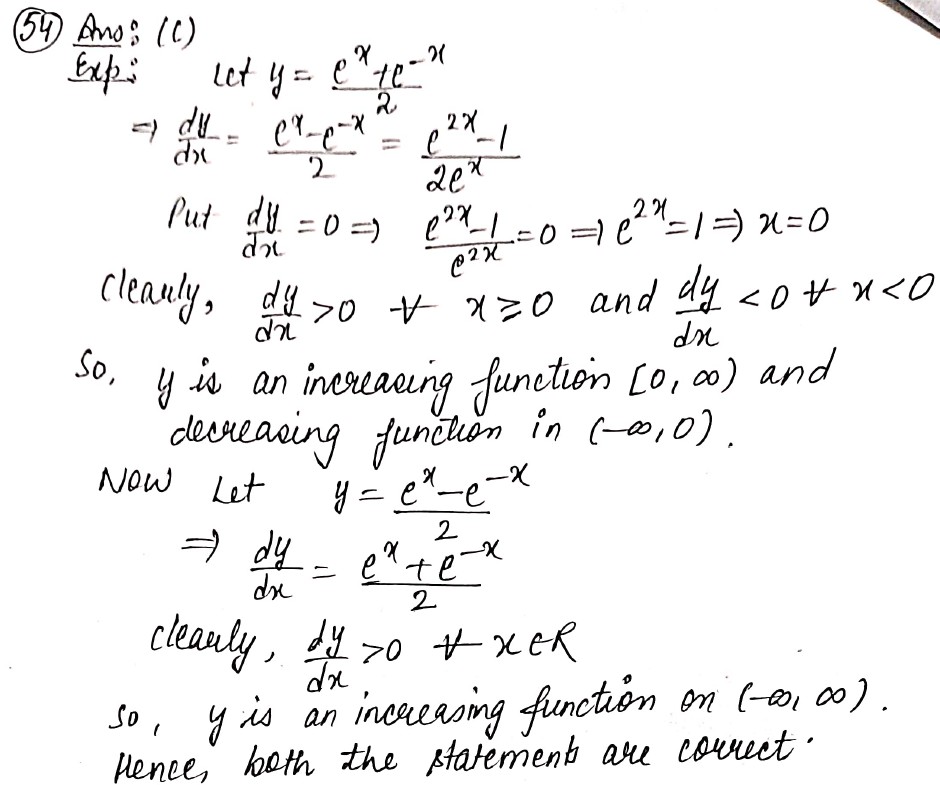 (54) Ans: (C)
Exp: Let y = (e^x + e^-x)/2
⇒ dy/dx = (e^x - e^-x)/2 = (e^2x - 1)/(2e^x)
Put dy/dx = 0 ⇒ (e^2x - 1)/(e^2x) = 0 ⇒ e^2x = 1 ⇒ x = 0
Clearly, dy/dx > 0 ∀ x ≥ 0 and dy/dx < 0 ∀ x < 0
So, y is an increasing function [0, ∞) and
decreasing function in (-∞, 0).
Now Let y = (e^x - e^-x)/2
⇒ dy/dx = (e^x + e^-x)/2
Clearly, dy/dx > 0 ∀ x ∈ R
So, y is an increasing function on (-∞, ∞).
Hence, both the statements are correct.